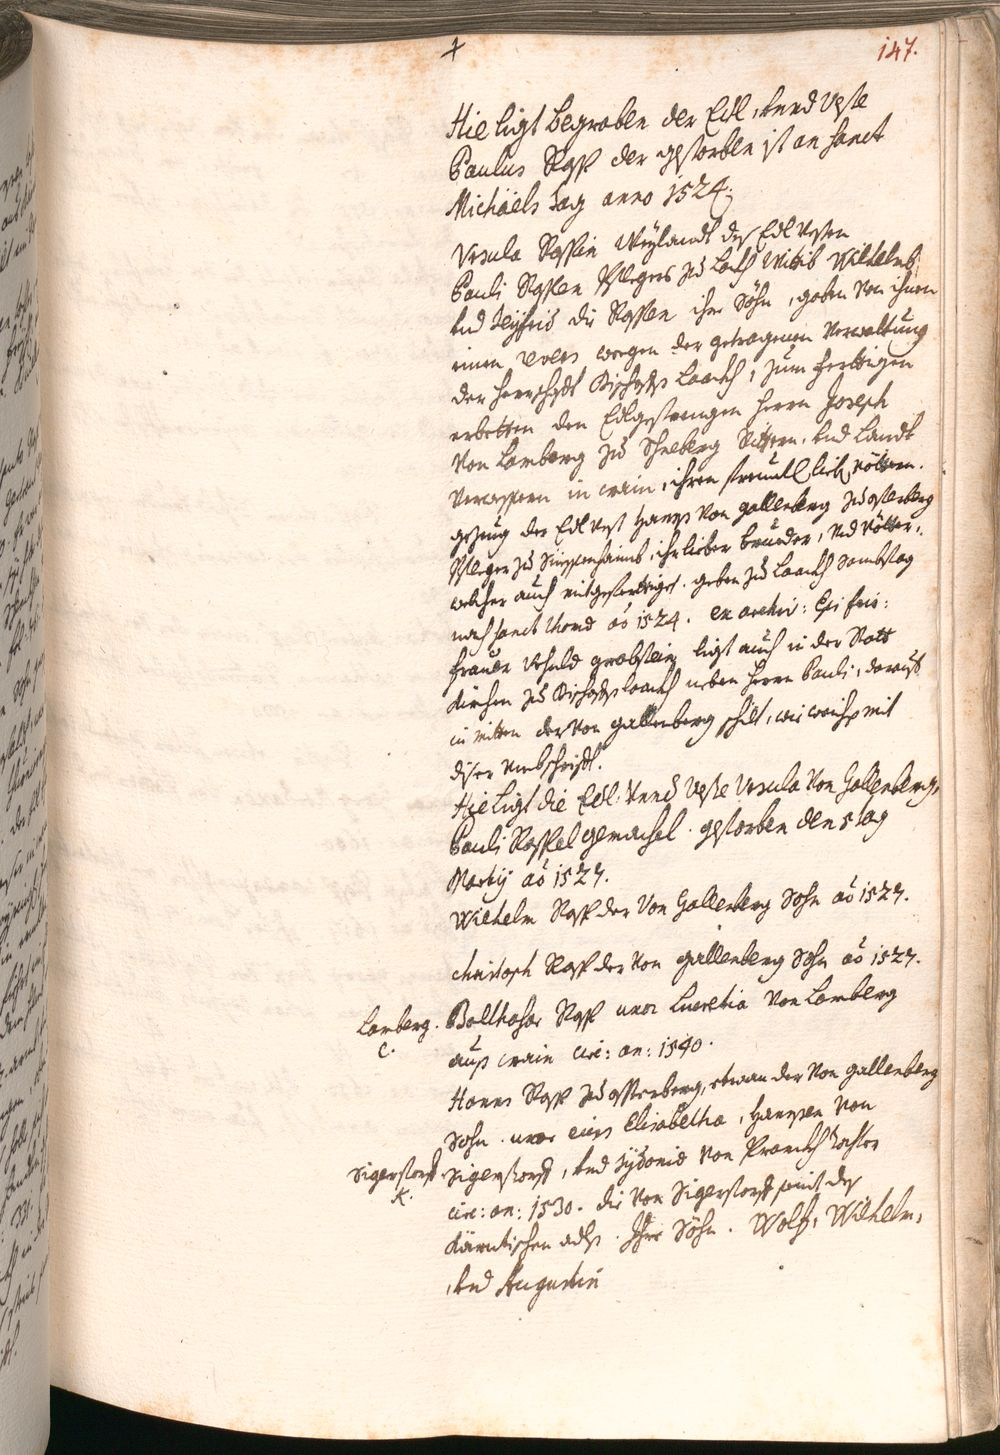 147.
Hie ligt begraben der Edl, vnnd Veste
Paulus Rasp der gestorben ist an sanct
Michäels tag anno 1524.
Vrsula Raspin Weylandt des Edl Vesten
Pauli Raspen Pflegers zu Lackh Witib Wilhelmb
vnd Seyfrid die Raspen ihre Söhn, geben von ihnen
einen revers wegen der getragenen Verwaltung
der herrschafft Bischoffs Laackh, zum ferttigen
erbetten den Edlgestrengen herrn Joseph
Von Lamberg zu Schneberg Rittern, vnd Landt
Verwesern in crain, ihren freundl. lieb. vöttern.
gezeug der Edl vest Hanns von gallenberg zu osterberg
Pfleger zu, ihr lieber bruder, vnd vötter,
welcher auch mitgeferttiget. geben zu Laackh Sambstag
nach sanct Thomä aõ 1524. ex archiv: Epi fris:
frauen Vrsula grabstein ligt auch in der Statt
kirchen zu Bischoffslaackh neben herrn Pauli, darauf
in mitten der von gallenberg schilt, wie weiß mit
diser vmbschrifft.
Hie Ligt die Edl. Vnnd Veste Vrsula Von Gallenberg,
Pauli Raspel gemachel. gestorben den 5 tag
Martij aõ 1527.
Wilhelm Rasp der Von Gallenberg Sohn aõ 1527.
Christoph Rasp der von gallenberg Sohn aõ 1527.
Lamberg. Balthasar Rasp uxor Lucretia Von Lamberg
C. auß crain circ: an: 1540.
Hanns Rasp zu osterberg, etwan der Von gallenberg
Sohn. uxor eius Elisabetha, Hannsen Von
Sigerstorff. Sigerstorff, vnd Sydonia von Pranckh tochter
K. circ: an: 1530. die Von Sigerstorff seint des
kärntischen adls. Ihre Söhn. Wolf, Wilhelm,
vnd Augustin